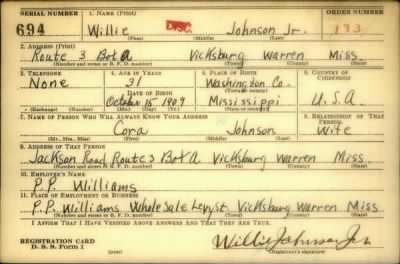 SERIAL NUMBER 1. NAME (Print) ORDER NUMBER
694 Willie DISC. Johnson Jr. 193
(First) (Middle) (Last)
2. ADDRESS (Print)
Route 3 Bot A Vicksburg Warren Miss
(Number and street or R. F. D. number) (Town) (County) (State)
3. TELEPHONE 4. AGE IN YEARS 5. PLACE OF BIRTH 6. COUNTRY OF CITIZENSHIP
None 31 Washington Co.
DATE OF BIRTH (Town or county)
October 15 1909 Mississippi U.S.A
(Exchange) (Number) (Mo.) (Day) (Yr.) (State or country)
7. NAME OF PERSON WHO WILL ALWAYS KNOW YOUR ADDRESS 8. RELATIONSHIP OF THAT PERSON
Cora Johnson Wife
(Mr., Mrs., Miss) (First) (Middle) (Last)
9. ADDRESS OF THAT PERSON
Jackson Road Route 3 Bot A Vicksburg Warren Miss.
(Number and street or R. F. D. number) (Town) (County) (State)
10. EMPLOYER'S NAME
P.P. Williams
11. PLACE OF EMPLOYMENT OR BUSINESS
P.P. Williams Whole Sale Levy St. Vicksburg Warren Miss
(Number and street or R. F. D. number) (Town) (County) (State)
I AFFIRM THAT I HAVE VERIFIED ABOVE ANSWERS AND THAT THEY ARE TRUE.
REGISTRATION CARD
D. S. S. Form 1 (over) Willie Johnson Jr.
(Signature)